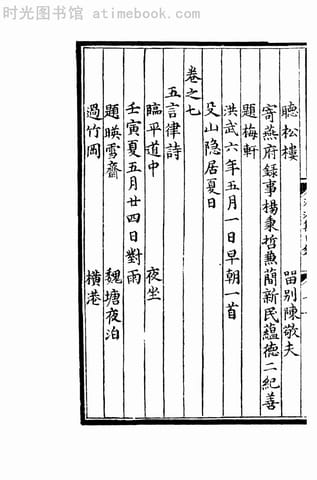 时光图书馆 - atimebook.com
聽松樓 畱别陳敬夫
寄燕府録事楊秉哲兼簡新民蘊德二紀善
題梅軒
洪武六年五月一日早朝一首
殳山隐居夏日
卷之七
五言律詩
臨平道中 夜坐
壬寅夏五月廿四日對雨
題暎雪齋 魏塘夜泊
過竹岡 橫港